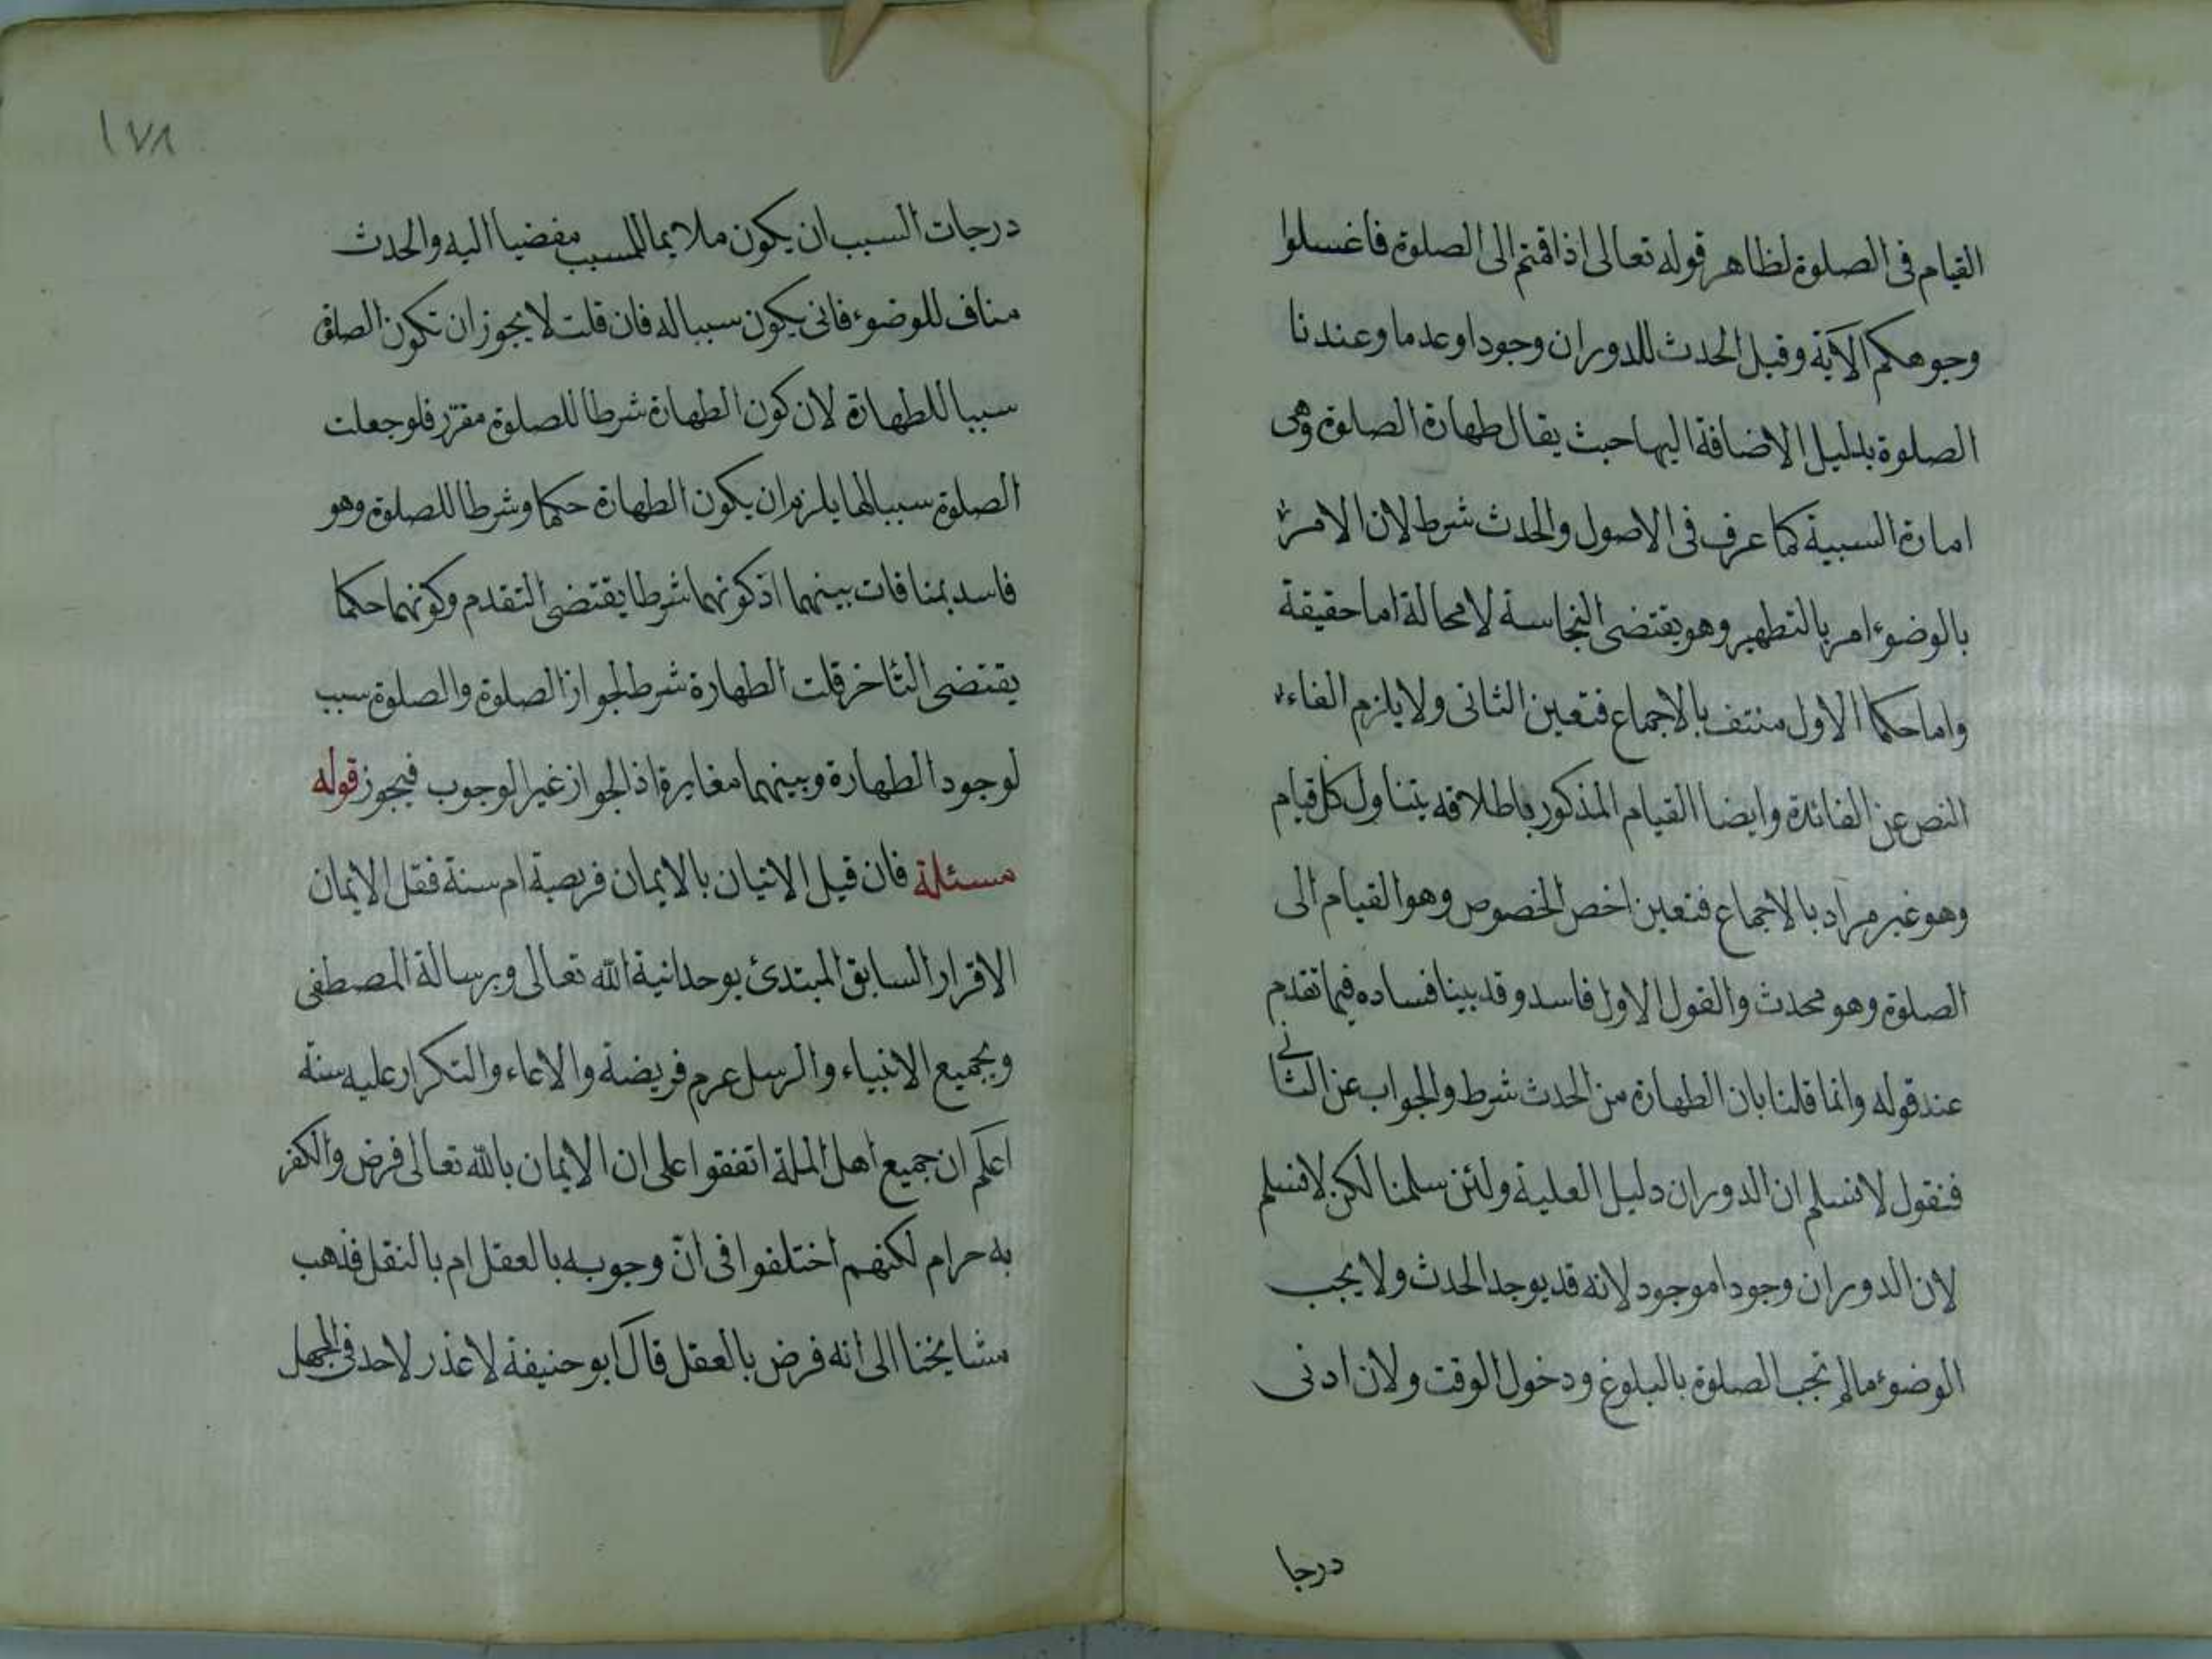 القيام فى الصلوة لظاهر قوله تعالى اذا قمتم الى الصلوة فاغسلوا
وجوهكم الآية وقيل الحدث للدوران وجودا وعدما وعندنا
الصلوة بدليل الاضافة اليها حيث يقال طهارة الصلوة وهى
امارة السببية كما عرف فى الاصول والحدث شرط لان الامر
بالوضوء امر بالتطهير وهو يقتضى النجاسة لا محالة اما حقيقة
واما حكما الاول منتف بالاجماع فتعين الثانى ولا يلزم الغاء
النص عن الفائدة وايضا القيام المذكور باطلاقه يتناول كل قيام
وهو غير مراد بالاجماع فتعين اخص الخصوص وهو القيام الى
الصلوة وهو محدث والقول الاول فاسد وقد بينا فساده فيما تقدم
عند قوله وانما قلنا بان الطهارة من الحدث شرط والجواب عن الثانى
فنقول لا نسلم ان الدوران دليل العلية ولئن سلمنا لكن لا نسلم
لان الدوران وجودا موجود لانه قد يوجد الحدث ولا يجب
الوضوء مالم تجب الصلوة بالبلوغ ودخول الوقت ولان ادنى
درجا
١٧٨
درجات السبب ان يكون ملايما للمسبب مفضيا اليه والحدث
مناف للوضوء فانى يكون سببا له فان قلت لا يجوز ان تكون الصلوة
سببا للطهارة لان كون الطهارة شرطا للصلوة مقرر فلو جعلت
الصلوة سببا لها يلزم ان يكون الطهارة حكما وشرطا للصلوة وهو
فاسد بمنافات بينهما اذ كونهما شرطا يقتضى التقدم وكونهما حكما
يقتضى التأخر قلت الطهارة شرط لجواز الصلوة والصلوة سبب
لوجود الطهارة وبينهما مغايرة اذ الجواز غير الوجوب فيجوز قوله
مسئلة فان قيل الاتيان بالايمان فريضة ام سنة فقل الايمان
الاقرار السابق المبتدئ بوحدانية الله تعالى وبرسالة المصطفى
وبجميع الانبياء والرسل عرم فريضة والاعاء والتكرار عليه سنة
اعلم ان جميع اهل الملة اتفقوا على ان الايمان بالله تعالى فرض والكفر
به حرام لكنهم اختلفوا فى انّ وجوبه بالعقل ام بالنقل فذهب
مشايخنا الى انه فرض بالعقل قال ابو حنيفة لا عذر لاحد فى الجهل